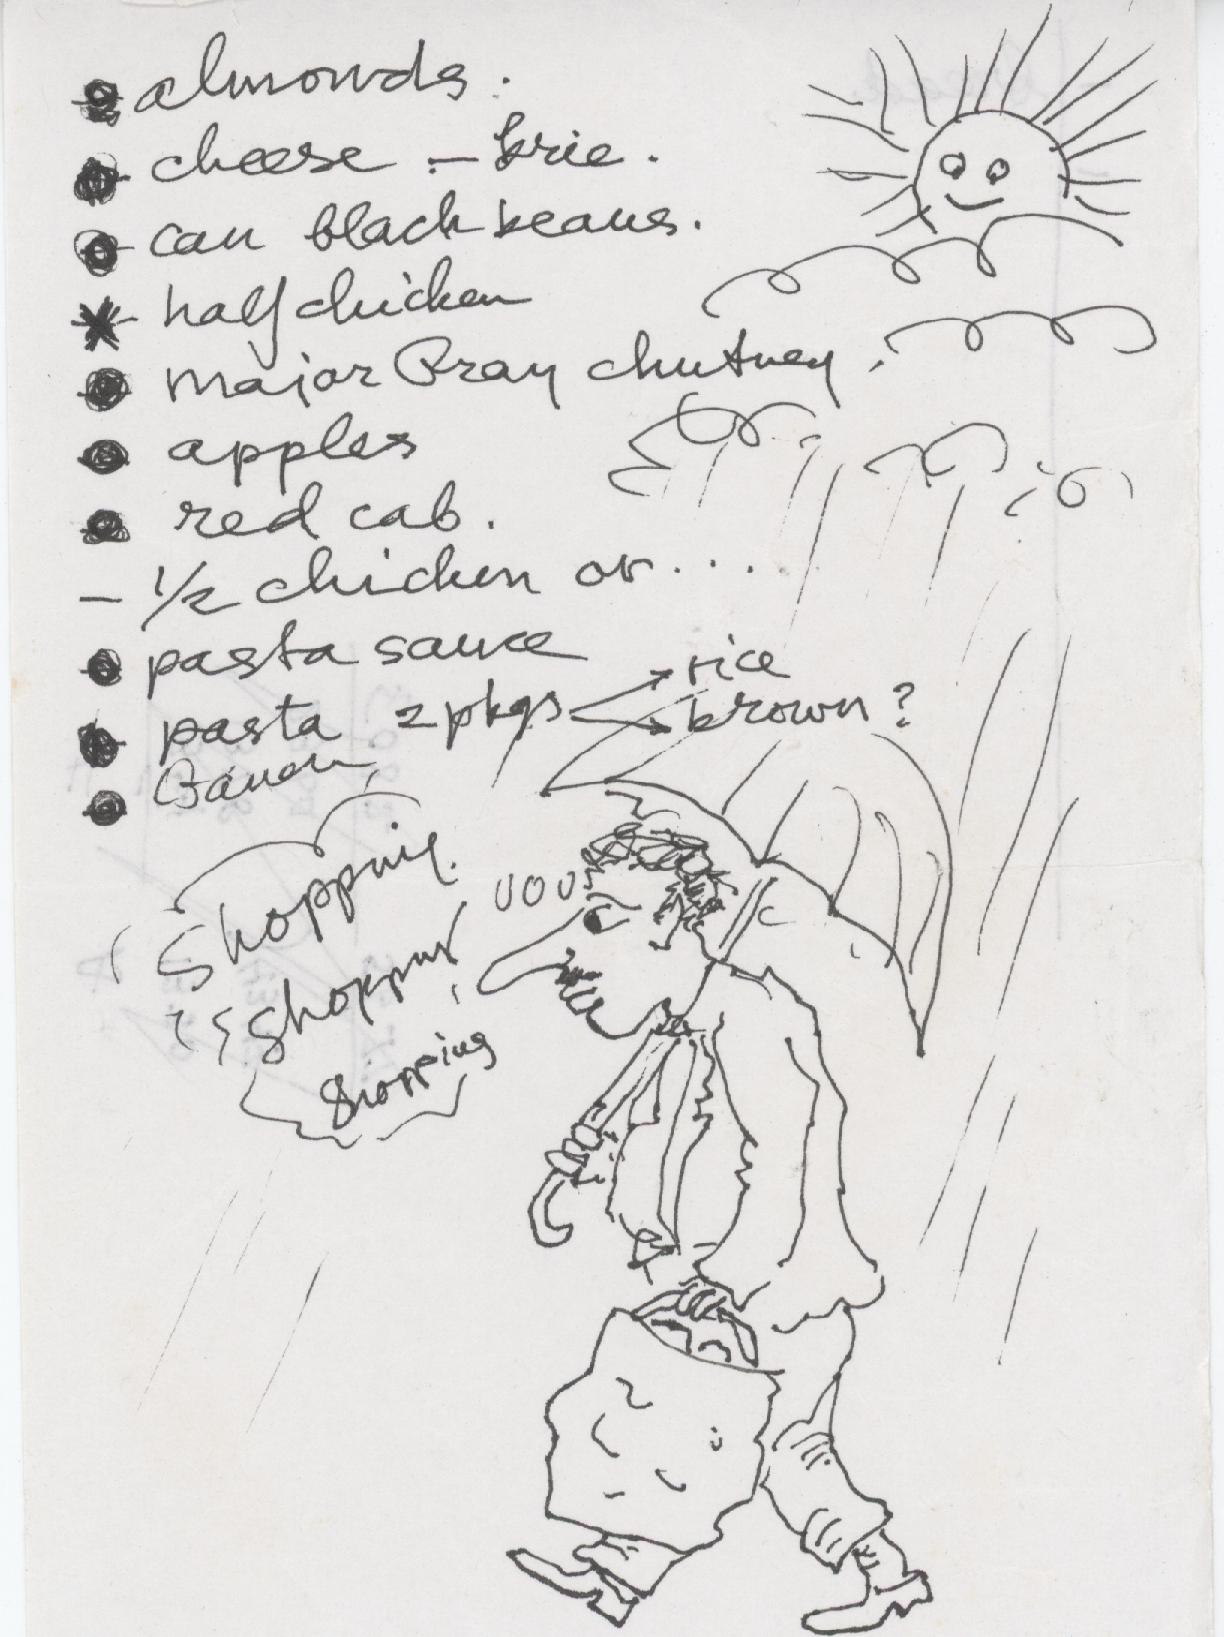 almonds.
cheese – brie.
can black beans.
half chicken
major Gray chutney.
apples
red cab.
– 1/2 chicken or....
pasta sauce
pasta 2 pkgs rice
brown?
Shopping.
Shopping
Shopping